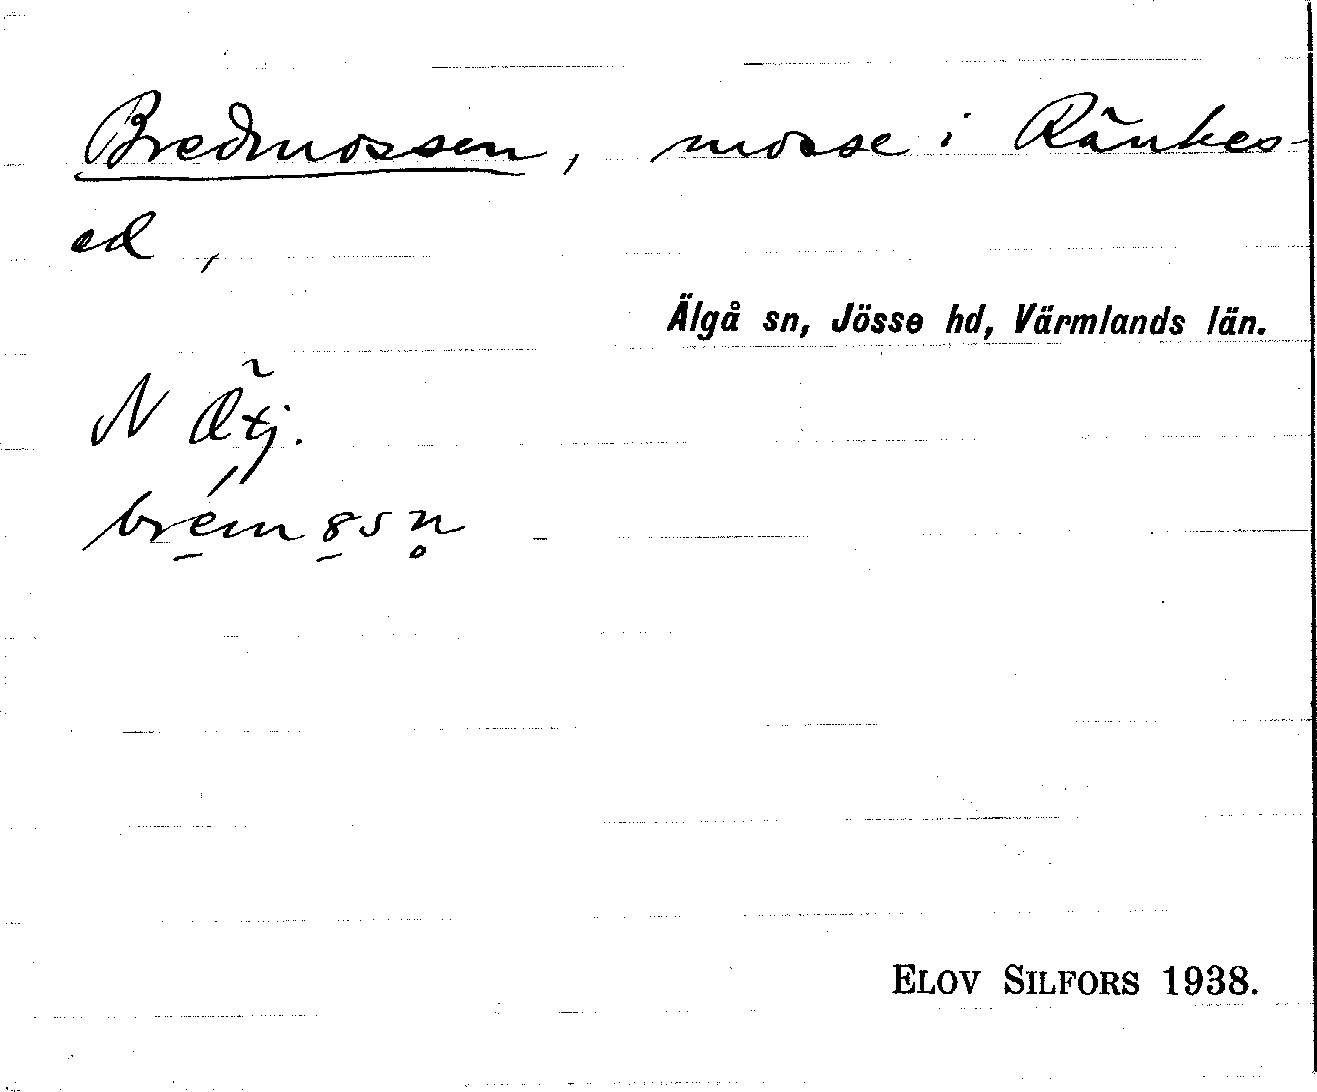 Bredmossen, mosse i Ränkes-
ed,
Älgå sn, Jösse hd, Värmlands län.
N
ELOV SILFORS 1938.